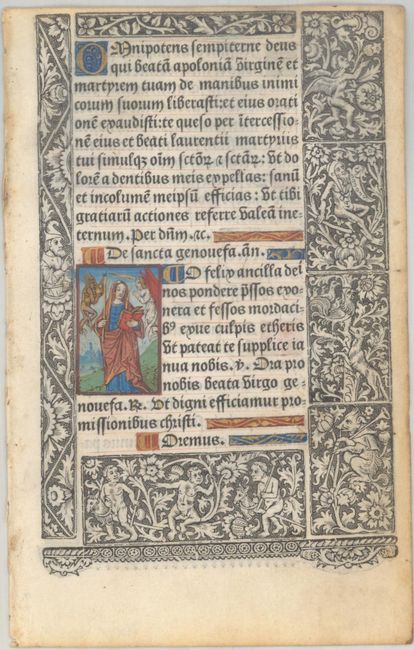 Omnipotens sempiterne deus
qui beatā apoloniā virginē et
martyrem tuam de manibus inimi
corum suorum liberasti: et eius orati
onē exaudisti: te queso per ītercessio-
nē eius et beati laurentii martyriis
tui simulqꝫ oīm sctōꝝ ⁊ sctāꝝ: Vt do
lorē a dentibus meis expellas: sanū
et incolumē meipsū efficias: Vt tibi
gratiarū actiones referre valeā ine-
ternum. Per dn̄m. ⁊c.
De sancta genouefa. an̄.
O felix ancilla dei
nos pondere p̄ssos exo-
nera et fessos mordaci-
bꝰ exue culpis etheris
Vt pateat te supplice ia
nua nobis. v̄. Ora pro
nobis beata virgo ge-
nouefa. R̄. Vt digni efficiamur pro-
missionibus christi.
Oremus.